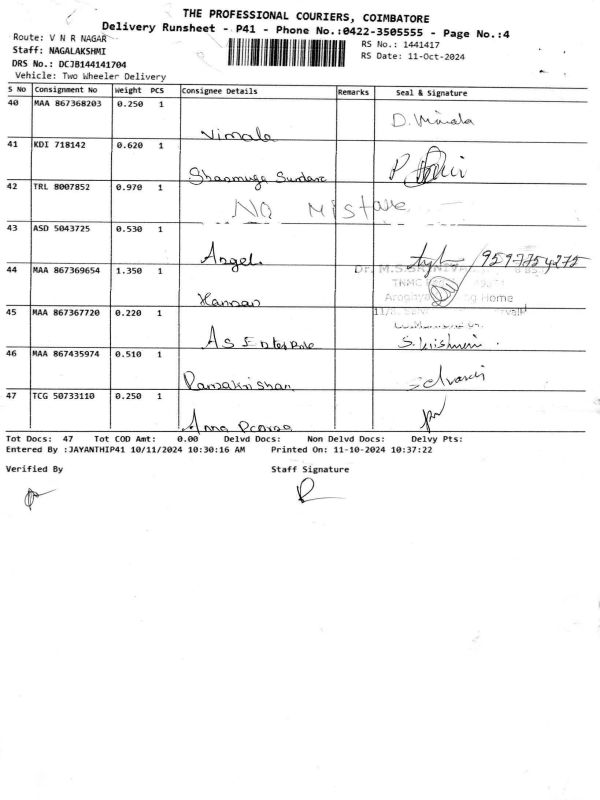 THE PROFESSIONAL COURIERS, COIMBATORE
Delivery Runsheet - P41 - Phone No.:0422-3505555 - Page No.:4
Route: V N R NAGAR
RS No.: 1441417
Staff: NAGALAKSHMI
RS Date: 11-Oct-2024
DRS No.: DCJB144141704
Vehicle: Two Wheeler Delivery
S No Consignment No Weight PCS Consignee Details Remarks Seal & Signature
40 MAA 867368203 0.250 1
Vimala D. Vimala
41 KDI 718142 0.620 1
42 TRL 8007852 0.970 1
No
43 ASD 5043725 0.530 1
Angel 9597754275
44 MAA 867369654 1.350 1
Dr. M.S.
TNMC
Home
45 MAA 867367720 0.220 1
A S
46 MAA 867435974 0.510 1
Ramakrishan
47 TCG 50733110 0.250 1
Anna
Tot Docs: 47 Tot COD Amt: 0.00 Delvd Docs: Non Delvd Docs: Delvy Pts:
Entered By :JAYANTHIP41 10/11/2024 10:30:16 AM Printed On: 11-10-2024 10:37:22
Verified By Staff Signature